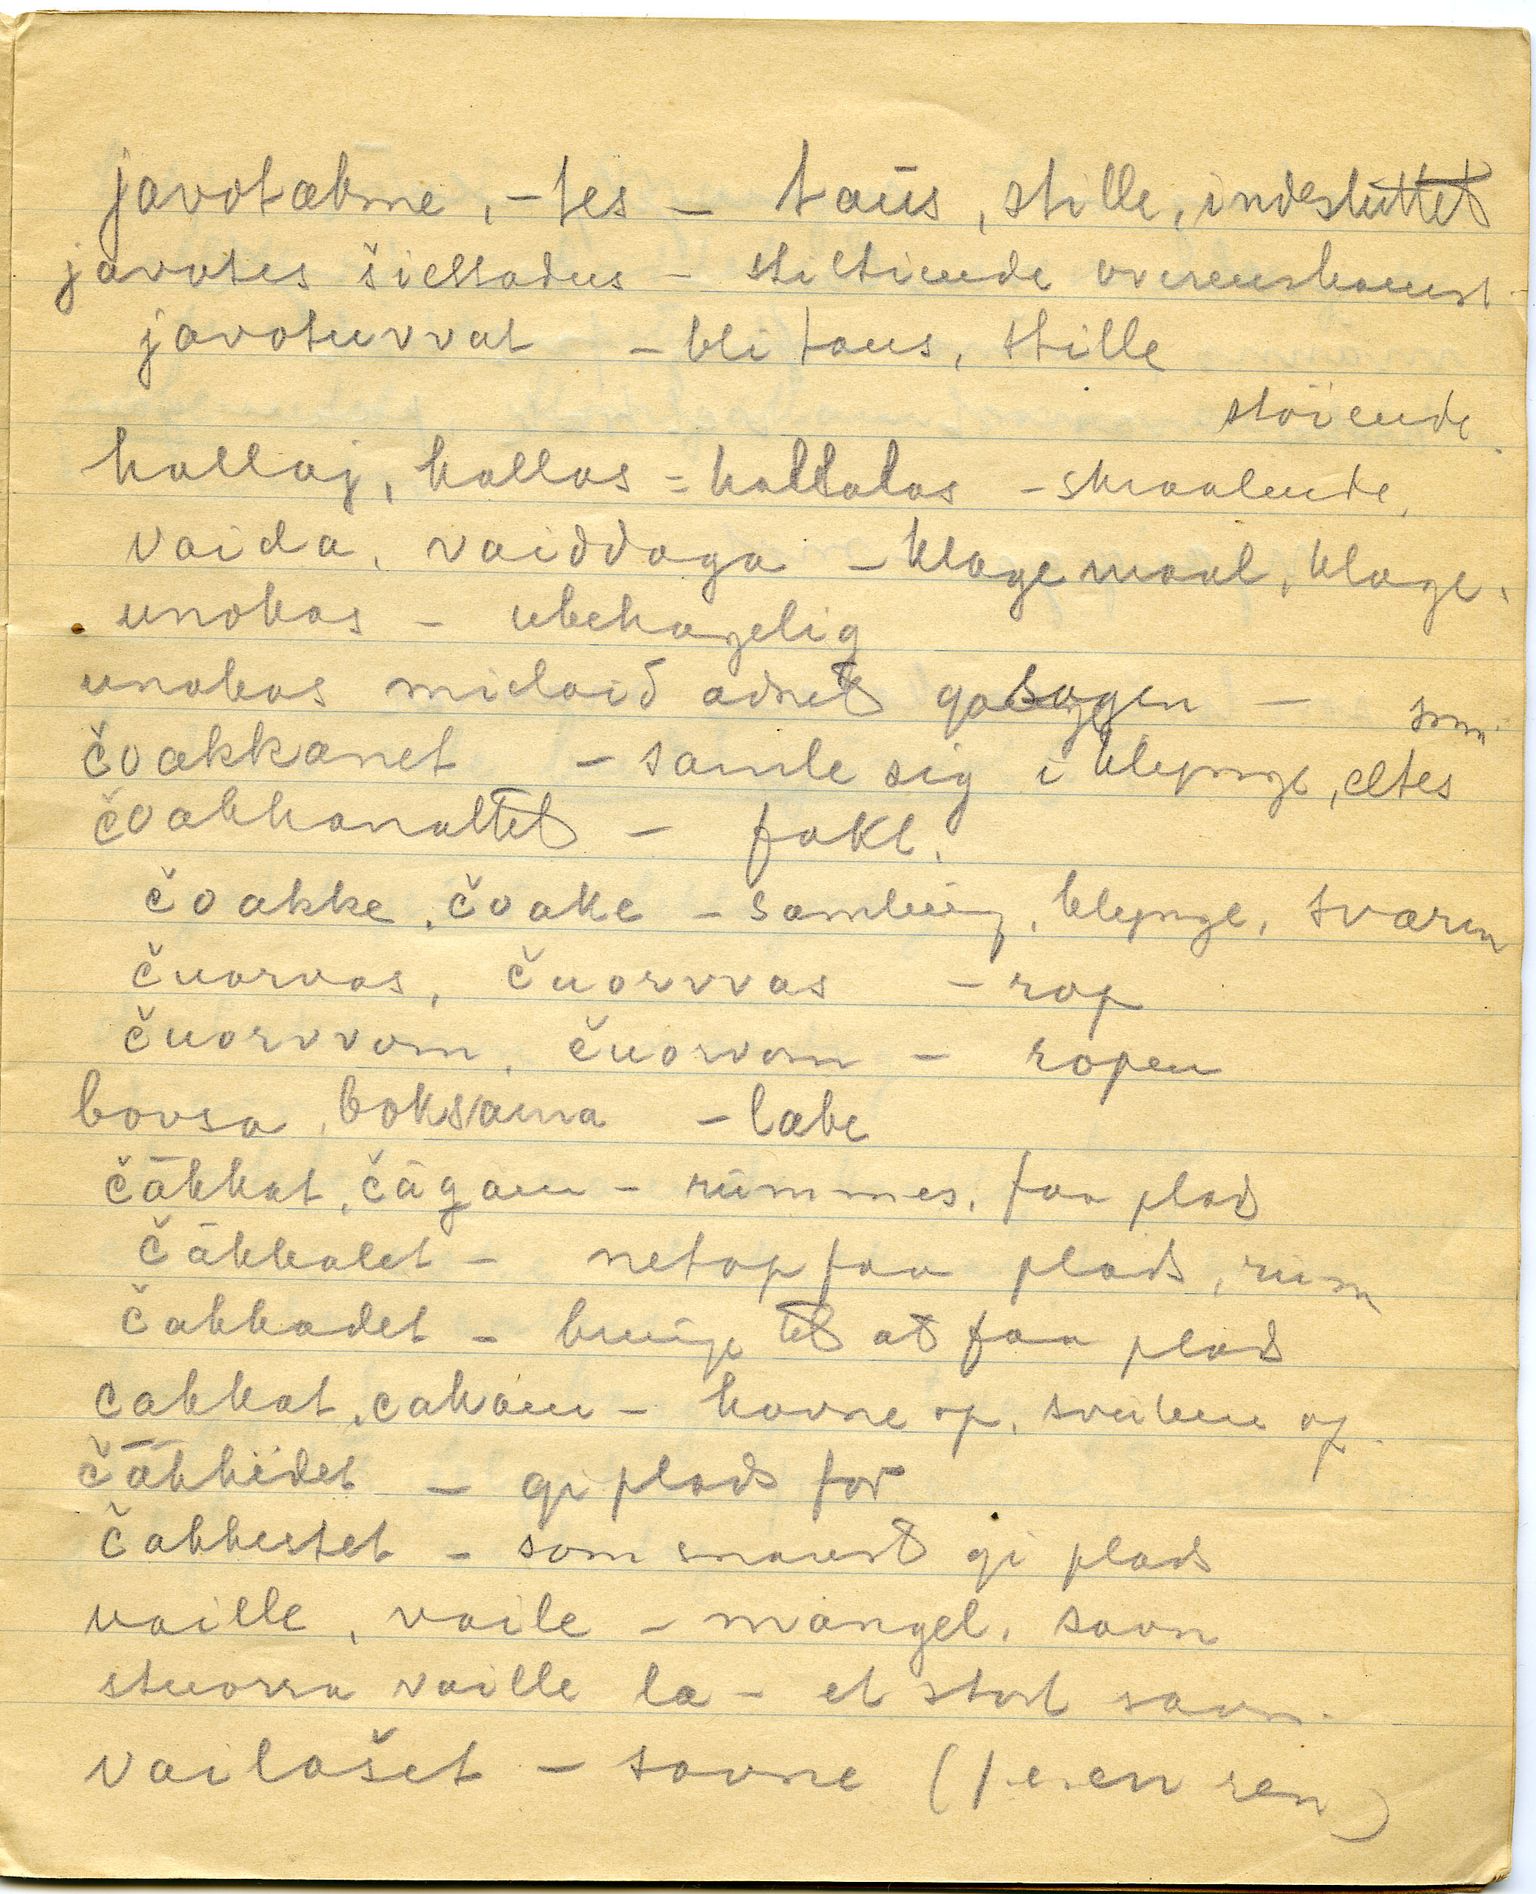 javotæbme, -tes - taus, stille, indesluttet
javotes šiettadus - stiltiende overenskomst
javotuvvat - bli taus, stille
støiende
hallaj, hallas = hallalas - skraalende,
vaida, vaiddaga - klagemaal, klage.
unokas - ubehagelig
unokas midaid adnet -
čoakkanet - samle sig i klynge, eltes
čoakkanattet - fakt.
čoakke, čoake - samling, klynge, sværm
čuorvas, čuorvvas - rop
čuorvvom, čuorvom - ropen
bovsa, boksama - læbe
čākkat, čāgam - rummes, faa plads
čākkalet - netop faa plads, rum
čakkadet - bringe til at faa plads
cakkat, cakam - hovne op, svulme op.
čākkidet - gi plads for
čakkestet - som snarest gi plads
vaille, vaile - mangel, savn
stuorra vaille la - et stort savn.
vailašet - savne (f.e. en ren)